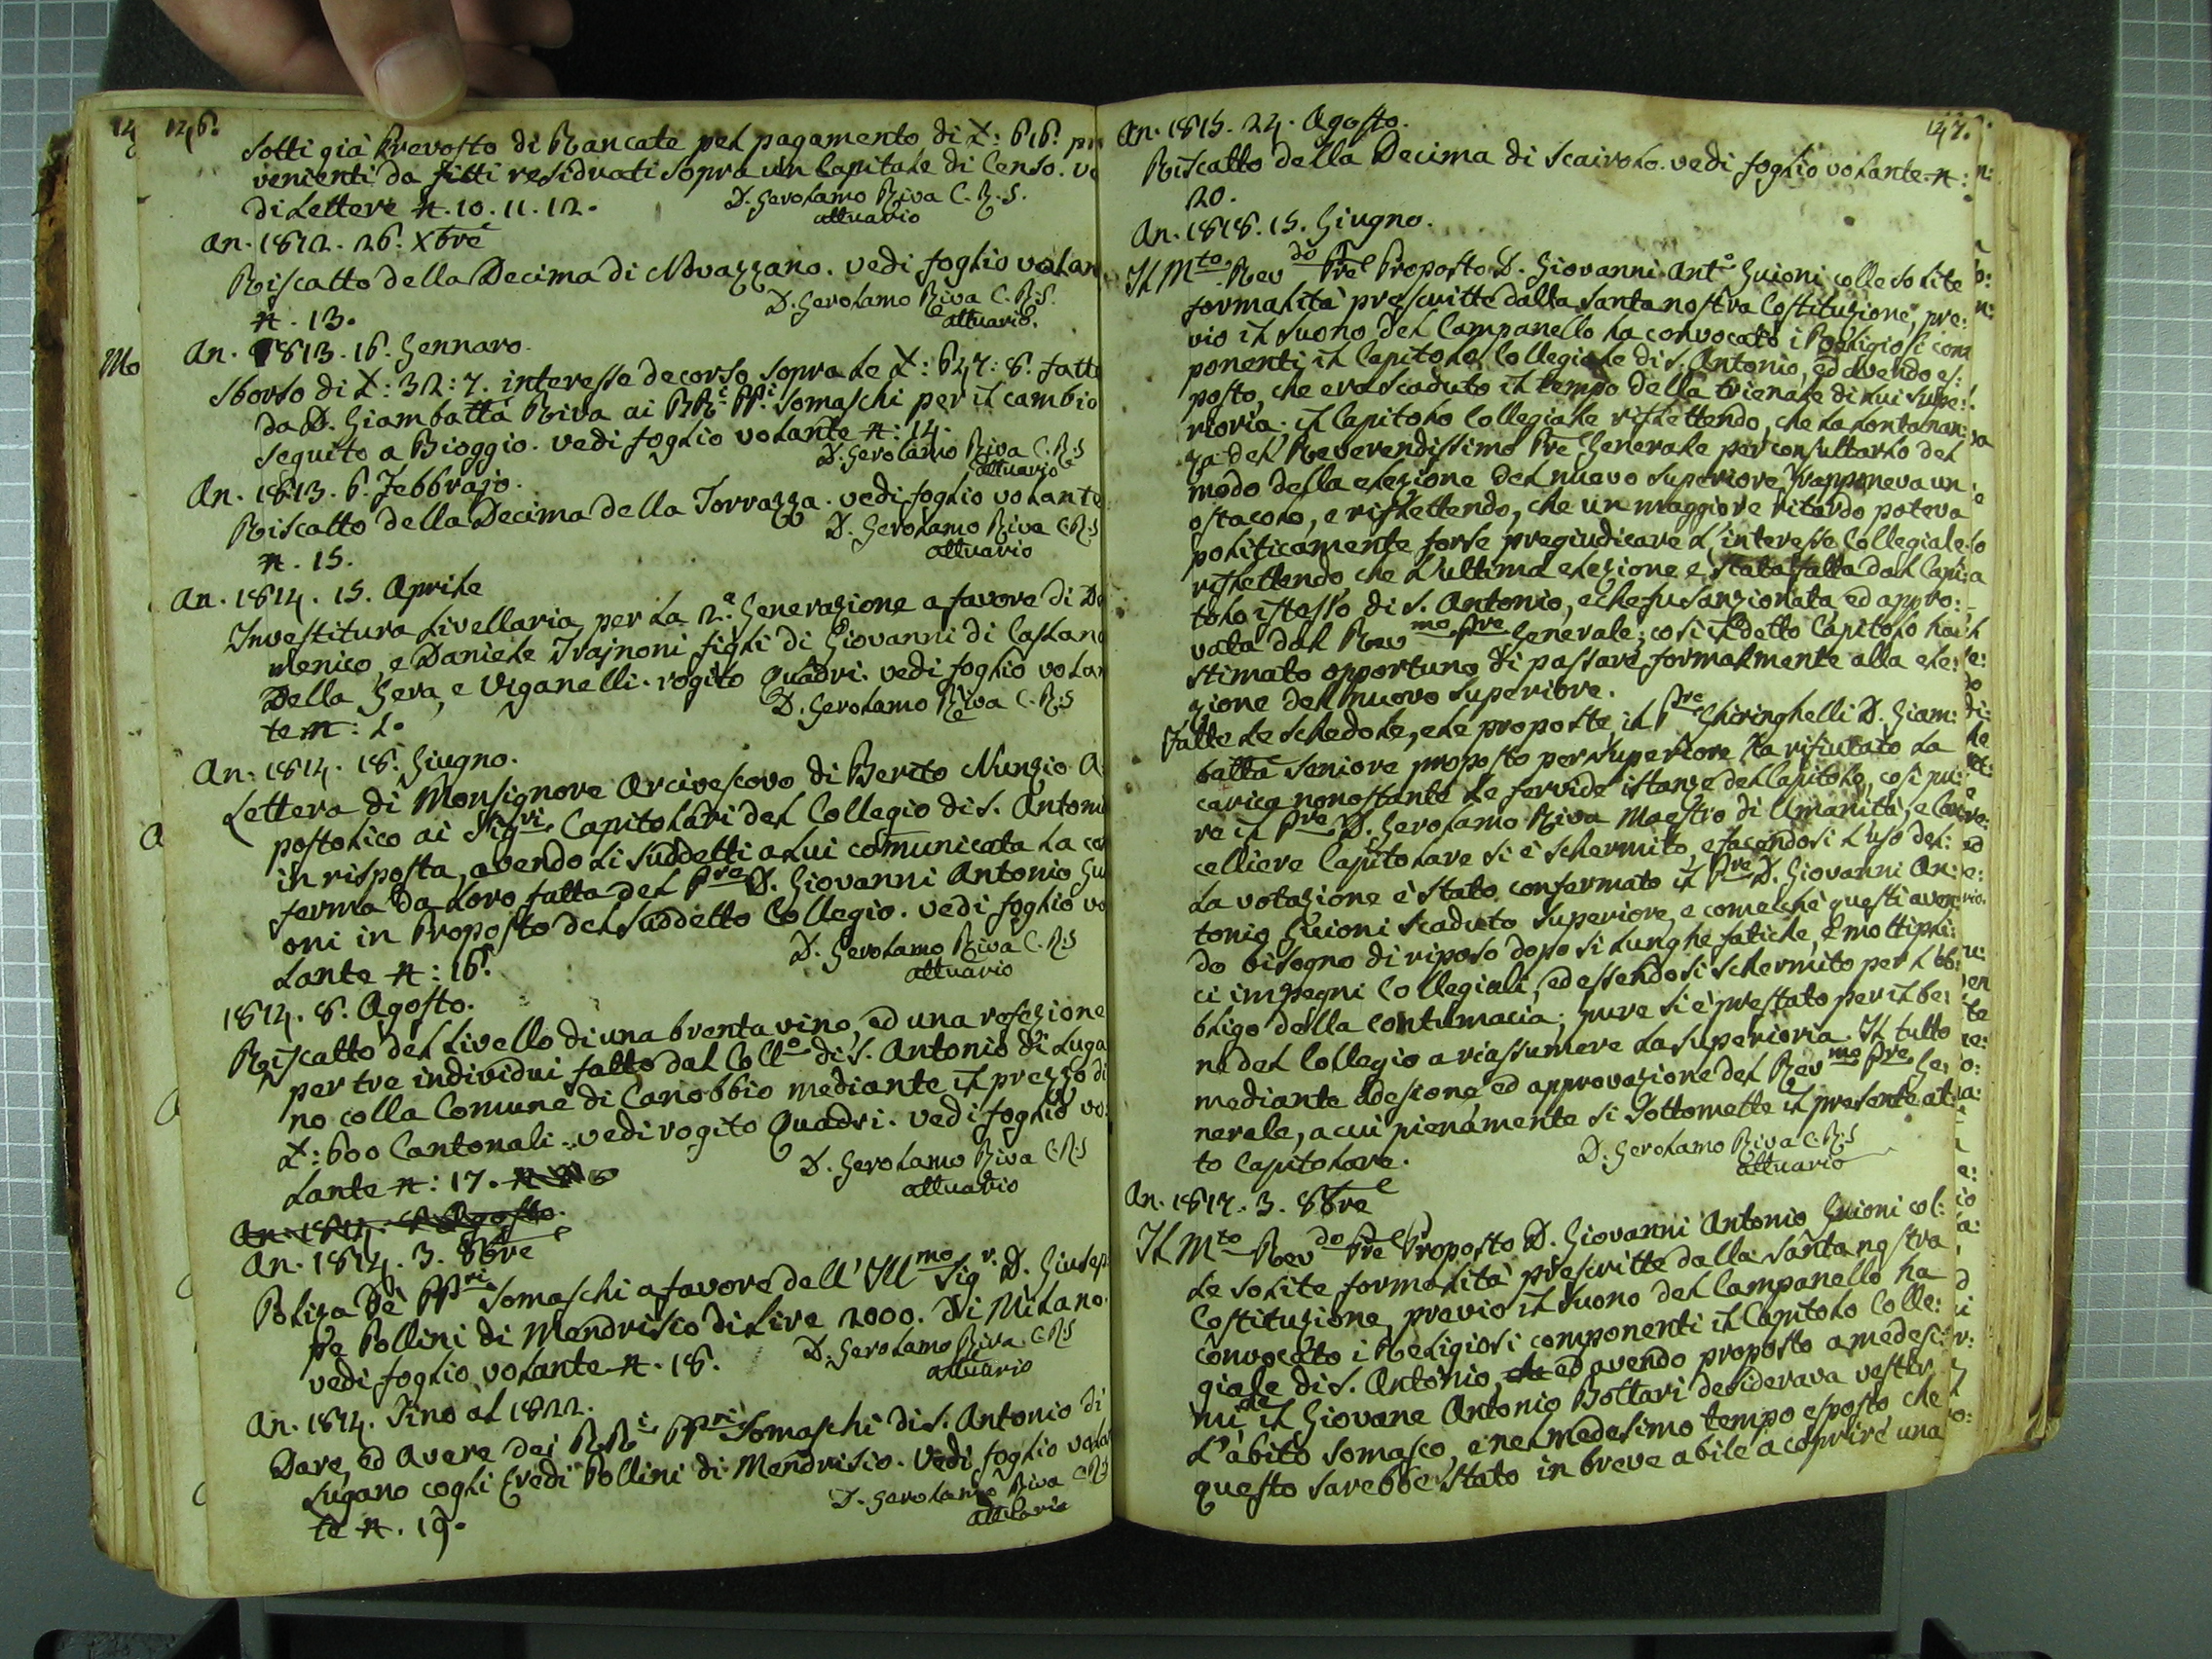 146.
sotti già Prevosto di Rancate pel pagamento di £: 616. pro
venienti da fitti residuati sopra un Capitale di Censo. ve
di Lettere n. 10. 11. 12.
D. Gerolamo Riva C. R. S.
attuario
An. 1812. 26. Xbre
Riscatto della Decima di Novazzano. vedi foglio volan
n. 13.
D. Gerolamo Riva C. R. S.
attuario.
An. 1813. 16. Gennaro.
Sborso di £: 312: 7. interesse decorso sopra le £: 647: 8. fatto
da D. Giambatta Riva ai RRi PPi Somaschi per il cambio
seguito a Bioggio. vedi foglio volante n: 14.
D. Gerolamo Riva C. R. S
attuario
An. 1813. 6. Febbrajo.
Riscatto della Decima della Torrazza. vedi foglio volante
n. 15.
D. Gerolamo Riva C. R. S
attuario
An. 1814. 15. Aprile
Investitura livellaria per la 2.a Generazione a favore di Do
menico, e Daniele Trajnoni figli di Giovanni di Caslano
Della Gera, e Viganelli. rogito Quadri. vedi foglio volan
te n: L.
D. Gerolamo Riva C. R. S
attuario
An. 1814. 18. Giugno.
Lettera di Monsignore Arcivescovo di Berito Nunzio A
postolico ai Sigri Capitolari del Collegio di S. Antoni
in risposta, avendo li suddetti a lui comunicata la con
ferma da loro fatta del Pre D. Giovanni Antonio Gui
oni in Proposto del suddetto Collegio. vedi foglio vo
lante n: 16.
D. Gerolamo Riva C. R. S
attuario
1814. 8. Agosto.
Riscatto del Livello di una brenta vino, ed una refezione
per tre individui fatto dal Collo di S. Antonio di Luga
no colla Comune di Canobbio mediante il prezzo di
£: 600 Cantonali. vedi rogito Quadri. vedi foglio vo
lante n: 17.
D. Gerolamo Riva C. R. S
attuario
An. 1814. 8 Agosto.
An. 1814. 3. 8bre
Poliza de' PPri Somaschi a favore dell' Illmo Sigr. D. Giusep
pe Pollini di Mendrisio di Lire 2000. di Milano.
vedi foglio volante n. 18.
D. Gerolamo Riva C. R. S
attuario
An. 1814. Sino al 1822.
Dare, ed Avere dei RRi PPri Somaschi di S. Antonio di
Lugano cogli Eredi Pollini di Mendrisio. Vedi foglio volan
te n. 19.
D. Gerolamo Riva C. R. S
attuario
147.
An. 1815. 24. Agosto.
Riscatto della Decima di Scairolo. vedi foglio volante. n:
20.
An. 1818. 15. Giugno.
Il Mto Revdo Pre Proposto D. Giovanni Anto Guioni colle solite
formalità prescritte dalla santa nostra Costituzione, pre:
vio il suono del Campanello ha convocato i Religiosi com
ponenti il Capitolo Collegiale di S. Antonio, ed avendo es:
posto, che era scaduto il tempo della trienale di lui supe:
rioria. il Capitolo Collegiale riflettendo, che la lontanan:
za del Reverendissimo Pre Generale per consultarlo del
modo della elezione del nuovo superiore frapponeva un
ostacolo, e riflettendo, che un maggiore ritardo poteva
politicamente forse pregiudicare l'interesse Collegiale.
riflettendo che l'ultima elezione è stata fatta dal Capi
tolo istesso di S. Antonio, e che fu sanzionata ed appro:
vata dal Revmo Pre Generale; così il detto Capitolo ha
stimato opportuno di passare formalmente alla ele:
zione del nuovo superiore.
Fatte le schedole, e le proposte, il Pre Ghiringhelli D. Giam:
batta Seniore proposto per superiore ha rifiutato la
carica nonostante le fervide istanze del Capitolo, così pu:
re il Pre D. Gerolamo Riva Maestro di Umanità, e Can
celliere Capitolare si è schermito, e facendosi l'uso del:
la votazione è stato confermato il Pre D. Giovanni An:
tonio Guioni scaduto superiore, e comechè questi aven
do bisogno di riposo dopo sì lunghe fatiche, e moltipli:
ci impegni Collegiali, ed essendosi schermito per l'ob:
bligo della contumacia; pure si è prestato per il be:
ne del Collegio a riassumere la superioria. Il tutto
mediante adesione ed approvazione del Revmo Pre Ge
nerale, a cui pienamente si sottomette il presente at
to Capitolare.
D. Gerolamo Riva C. R. S
attuario
An. 1817. 3. 8bre
Il Mto Revdo Pre Proposto D. Giovanni Antonio Guioni col:
le solite formalità prescritte dalla santa nostra
Costituzione, previo il suono del Campanello ha
convocato i Religiosi componenti il Capitolo Colle:
giale di S. Antonio, ed avendo proposto a medesi:
mi che il Giovane Antonio Bottari desiderava vestir
l'abito somasco, e nel medesimo tempo esposto che
questo sarebbe stato in breve abile a coprire una